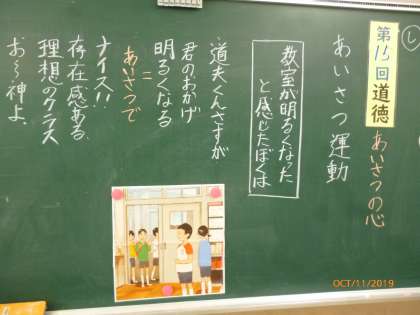 し
第15回道徳
あいさつの心
あいさつ運動
教室が明るくなった
と感じたぼくは
・道夫くんさすが
君のおかげ
明るくなる
=
あいさつで
ナイス!!
存在感ある
理想のクラス
お〜神よ、
OCT/11/2019